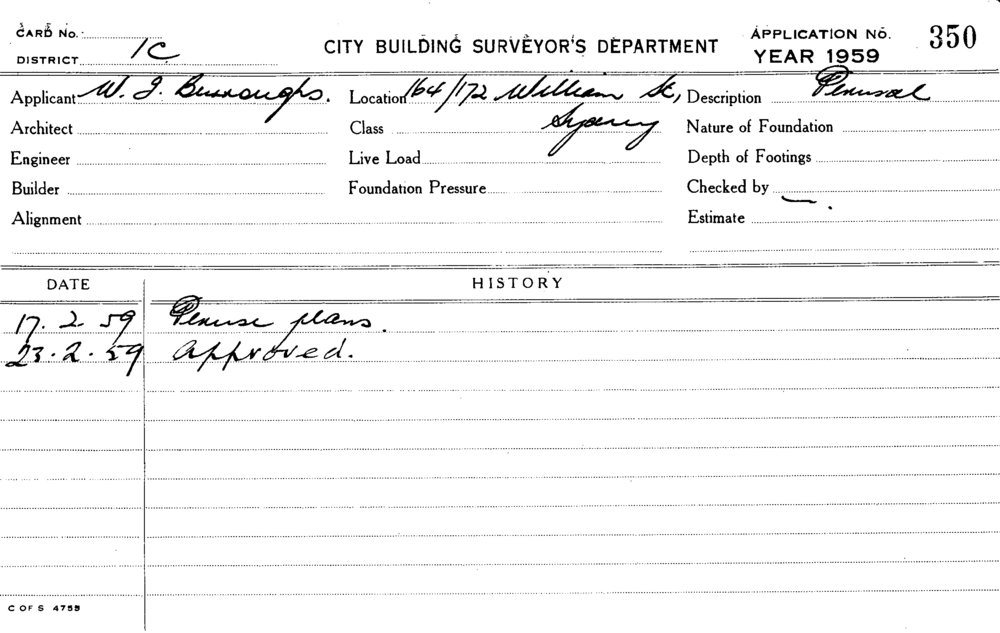 CARD No.
DISTRICT 1C
CITY BUILDING SURVEYOR'S DEPARTMENT
APPLICATION NO. 350
YEAR 1959
Applicant W. J. Burroughs. Location 164/172 William St, Description Perusal
Architect Class Sydney Nature of Foundation
Engineer Live Load Depth of Footings
Builder Foundation Pressure Checked by
Alignment Estimate
DATE HISTORY
17. 2. 59 Peruse plans.
23. 2. 59 Approved.
C OF S 4759